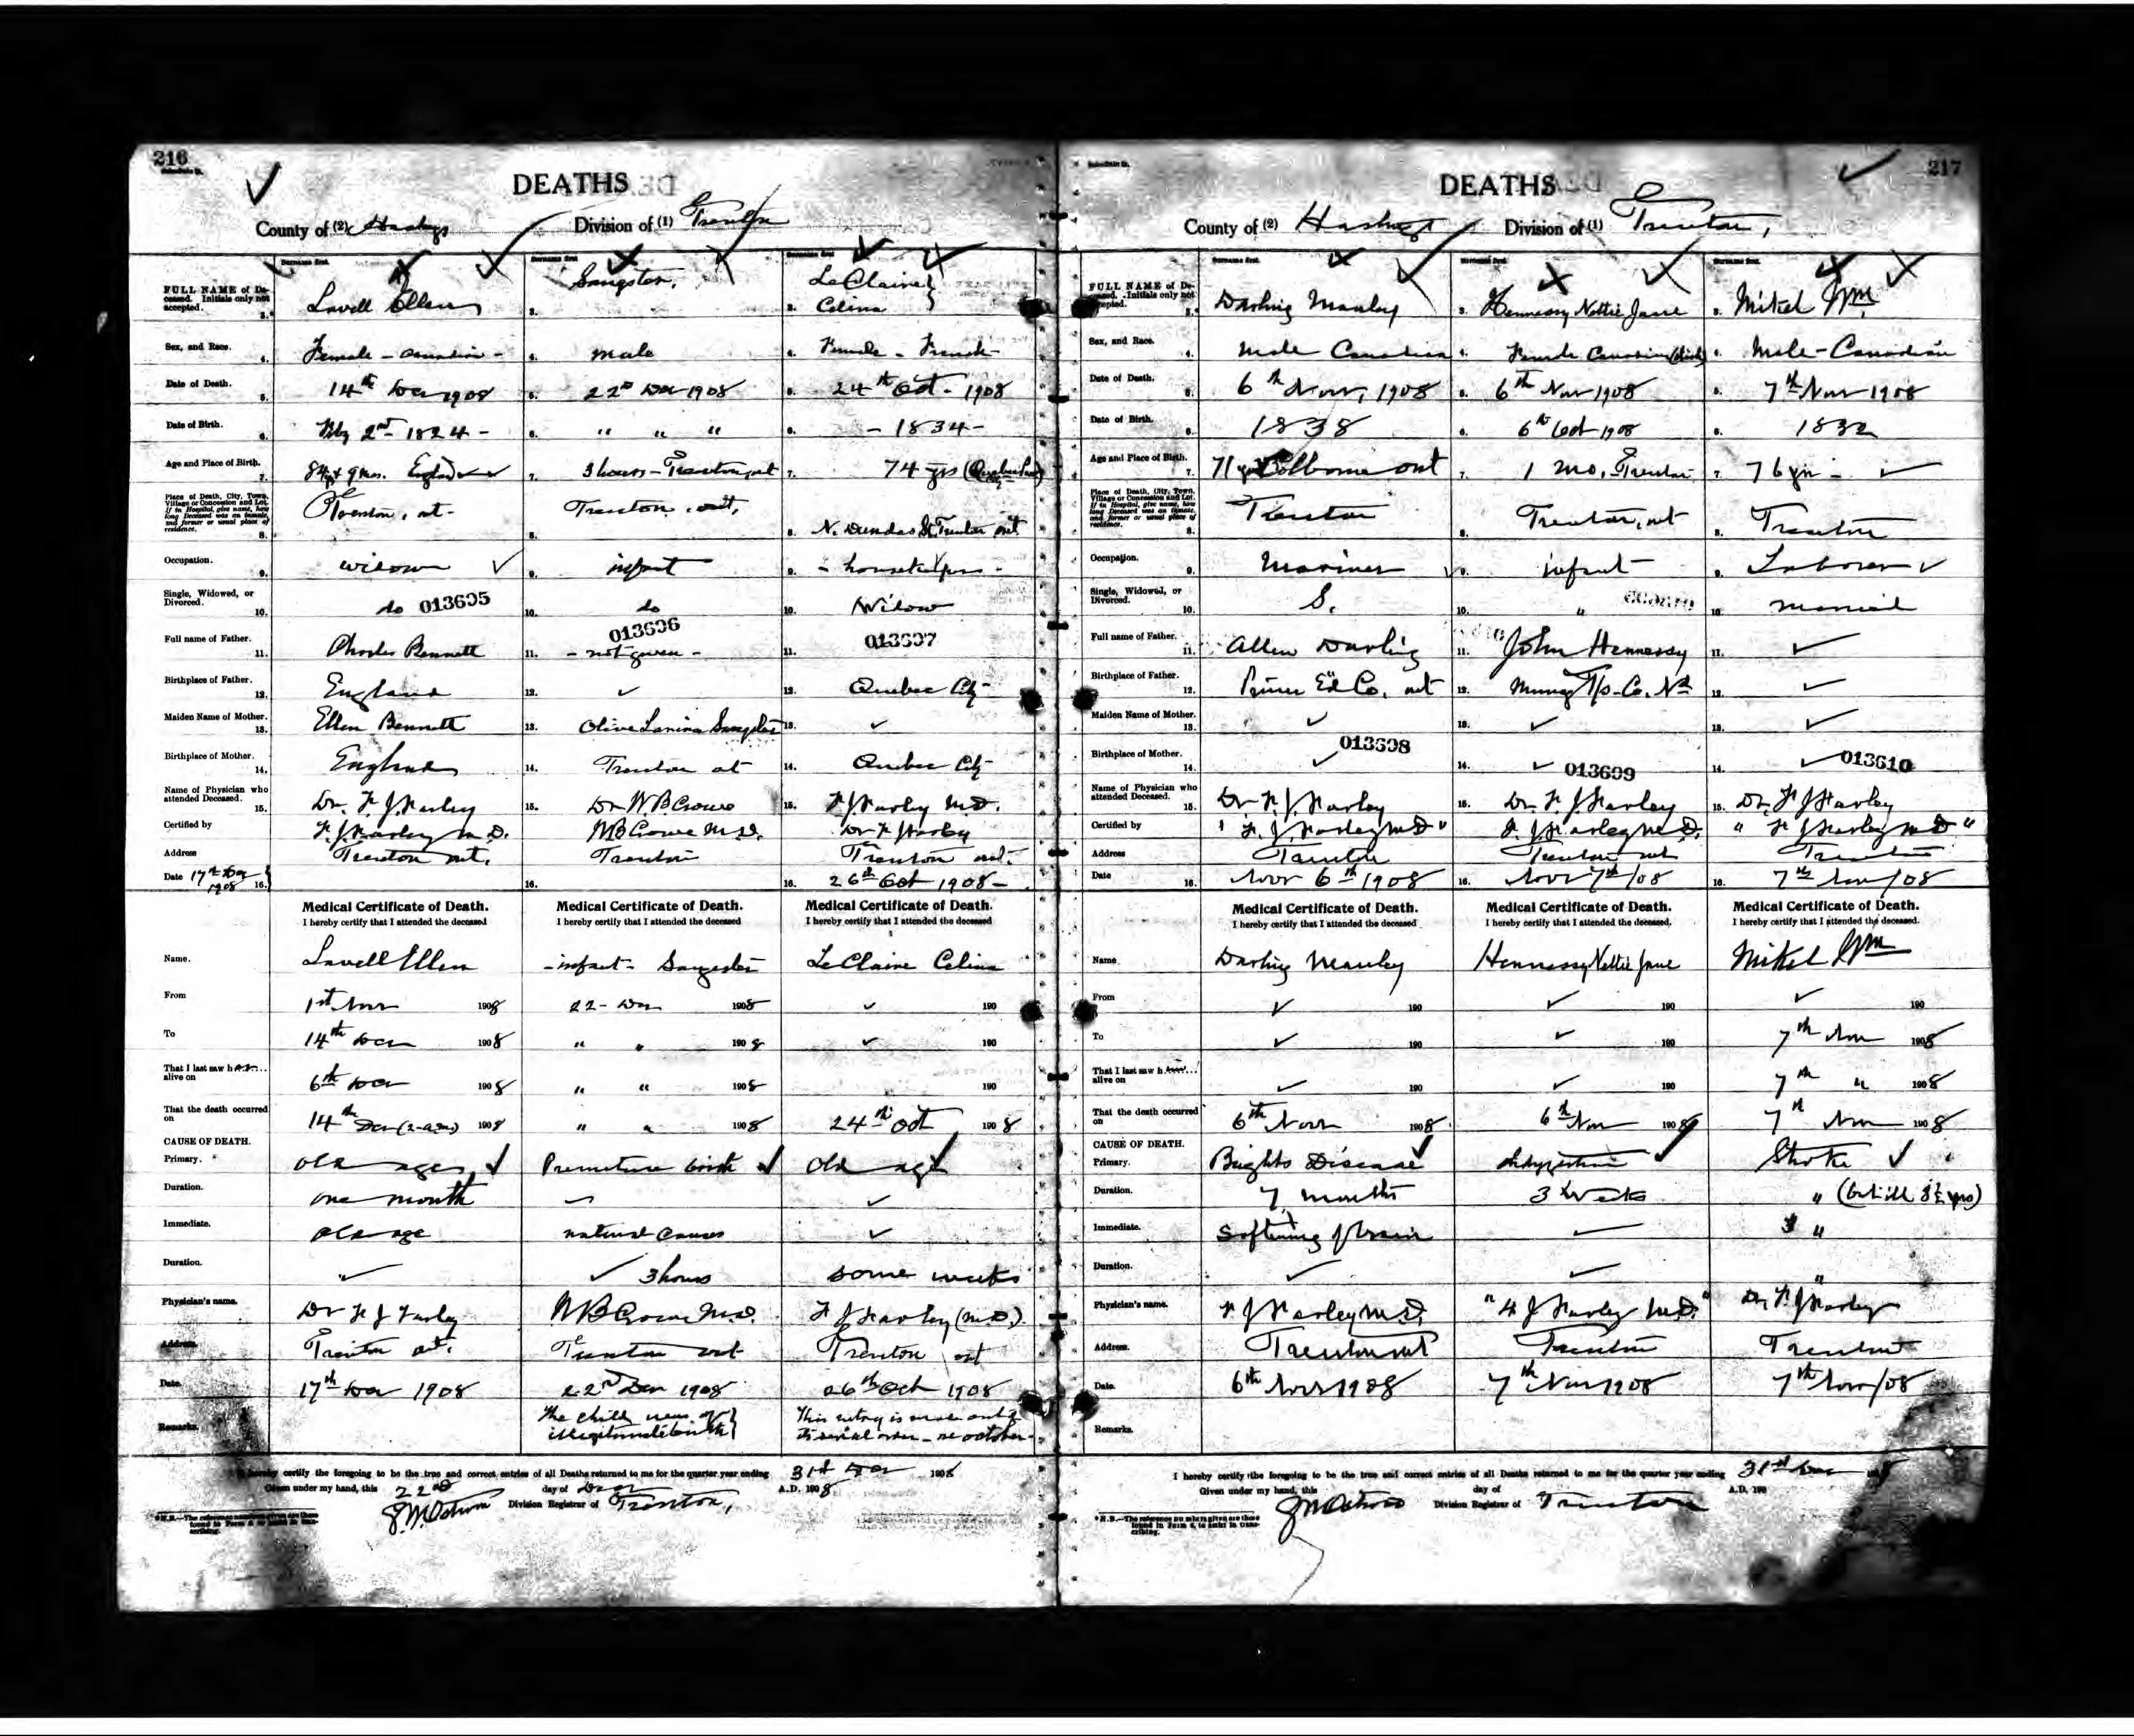 216
DEATHS
County of (2) Hastings Division of (1) Trenton
FULL NAME of Deceased. Initials only not accepted. 3. Lavell Ellen 3. Sangster, 3. LeClaire Celina
Sex, and Race. 4. Female - Canadian - 4. male 4. Female - French
Date of Death. 5. 14th Dec 1908 5. 22nd Dec 1908 5. 24th Oct - 1908
Date of Birth. 6. 2nd 1824 - 6. " " " 6. - 1834 -
Age and Place of Birth. 7. 84 yrs 9 mos. England 7. 3 hours - Trenton, ont 7. 74 yrs
Place of Death, City, Town, Village or Concession and Lot. If in Hospital, give name, how long Deceased was an inmate, and former or usual place of residence. 8. Trenton, ont - 8. Trenton, ont, 8. N. Dundas St Trenton ont
Occupation. 9. widow 9. infant 9. - housekeeper -
Single, Widowed, or Divorced. 10. do 013605 10. do 10. Widow
013606 013607
Full name of Father. 11. Charles Bennett 11. - not given - 11.
Birthplace of Father. 12. England 12. ✓ 12. Quebec City
Maiden Name of Mother. 13. Ellen Bennett 13. Olive Sangster 13. ✓
Birthplace of Mother. 14. England 14. Trenton ont 14. Quebec City
Name of Physician who attended Deceased. 15. Dr. F. J. Farley 15. Dr W B Crowe 15. F J Farley M.D.
Certified by F. J. Farley M.D. W B Crowe M.D. Dr F J Farley
Address Trenton ont. Trenton Trenton ont.
Date 17th Dec 1908 16. 16. 16. 26th Oct 1908 -
Medical Certificate of Death. Medical Certificate of Death. Medical Certificate of Death.
I hereby certify that I attended the deceased I hereby certify that I attended the deceased I hereby certify that I attended the deceased
Name. Lavell Ellen - infant - Sangster LeClaire Celina
From 1st Nov 1908 22 - Dec 1908 ✓ 190
To 14th Dec 1908 " " 1908 ✓ 190
That I last saw h er alive on 6th Dec 1908 " " 1908 190
That the death occurred on 14th Dec (2-a.m) 1908 " " 1908 24th Oct 1908
CAUSE OF DEATH.
Primary. old age ✓ Premature birth ✓ Old age ✓
Duration. one month ✓
Immediate. old age natural causes ✓
Duration. ✓ ✓ 3 hours some weeks
Physician's name. Dr F J Farley W B Crowe M.D. F J Farley (M.D.)
Address. Trenton ont. Trenton ont Trenton ont
Date. 17th Dec 1908 22nd Dec 1908 26th Oct 1908
Remarks. The child was of illegitimate birth This entry is made out of its serial order - see october -
I hereby certify the foregoing to be the true and correct entries of all Deaths returned to me for the quarter year ending 31st Dec 1908
Given under my hand, this 22nd day of Dec A.D. 1908
Division Registrar of Trenton,
*N.B.—The reference numbers given are those found in Form 6, to assist in transcribing.
217
DEATHS
County of (2) Hastings Division of (1) Trenton,
FULL NAME of Deceased. Initials only not accepted. 3. Darling Manley 3. Hennessy Nettie Jane 3. Mikel Wm
Sex, and Race. 4. Male Canadian 4. Female Canadian 4. Male - Canadian
Date of Death. 5. 6th Nov, 1908 5. 6th Nov 1908 5. 7th Nov 1908
Date of Birth. 6. 1838 6. 6th Oct 1908 6. 1832
Age and Place of Birth. 7. 71 yrs Colborne ont 7. 1 mo, Trenton 7. 76 yrs - ✓
Place of Death, City, Town, Village or Concession and Lot. If in Hospital, give name, how long Deceased was an inmate, and former or usual place of residence. 8. Trenton 8. Trenton, ont 8. Trenton
Occupation. 9. Mariner 9. infant 9. Laborer ✓
Single, Widowed, or Divorced. 10. S. 10. " 10. married
Full name of Father. 11. Allen Darling 11. John Hennessy 11. ✓
Birthplace of Father. 12. Prince Ed Co, ont 12. 12. ✓
Maiden Name of Mother. 13. ✓ 13. ✓ 13. ✓
Birthplace of Mother. 14. ✓ 013608 14. ✓ 013609 14. ✓ 013610
Name of Physician who attended Deceased. 15. Dr F. J. Farley 15. Dr F J Farley 15. Dr. F J Farley
Certified by " F. J. Farley M D " F. J. Farley M.D. " F J Farley M D "
Address Trenton Trenton ont Trenton
Date 16. Nov 6th 1908 16. Nov 7th /08 16. 7th Nov /08
Medical Certificate of Death. Medical Certificate of Death. Medical Certificate of Death.
I hereby certify that I attended the deceased I hereby certify that I attended the deceased. I hereby certify that I attended the deceased.
Name Darling Manley Hennessy Nettie Jane Mikel Wm
From ✓ 190 ✓ 190 ✓ 190
To ✓ 190 ✓ 190 7th Nov 1908
That I last saw h alive on ✓ 190 ✓ 190 7th " 1908
That the death occurred on 6th Nov 1908 6th Nov 1908 7th Nov 1908
CAUSE OF DEATH.
Primary. Brights Disease ✓ Indigestion ✓ Stroke ✓
Duration. 7 months 3 weeks " (but ill 3½ yrs)
Immediate. Softening of brain "
Duration. ✓ "
Physician's name. F J Farley M.D. " F J Farley M.D. " Dr. F. J Farley
Address. Trenton ont Trenton Trenton
Date. 6th Nov 1908 7th Nov 1908 7th Nov /08
Remarks.
I hereby certify the foregoing to be the true and correct entries of all Deaths returned to me for the quarter year ending 31st Dec
Given under my hand, this day of A.D. 190
Division Registrar of Trenton
*N.B.—The reference numbers given are those found in Form 6, to assist in transcribing.